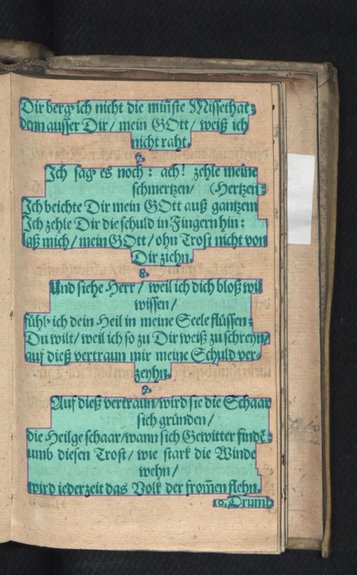 Dir berg ich nicht die minſte Miſſethat:
dann auſſer Dir / mein GOtt / weiß ich
nicht raht.
7.
Ich ſag es noch: ach! zehle meine
ſchmertzen / (Hertzen:
Ich beichte Dir mein GOtt auß gantzem
Ich zehle Dir die ſchuld in Fingern hin:
laß mich / mein GOtt / ohn Troſt nicht von
Dir ziehn.
8.
Und ſiehe Herr / weil ich dich bloß wil
wiſſen /
fühl ich dein Heil in meine Seele flüſſen:
Du wilt / weil ich ſo zu Dir weiß zu ſchreyn /
auf dieß vertraun mir meine Schuld ver-
zeyhn.
9.
Auf dieß vertraun / wird ſie die Schaar
ſich gründen /
die Heilge ſchaar / wann ſich Gewitter findt:
umb dieſen Troſt / wie ſtark die Winde
wehn /
wird iederzeit das Volk der from̃en flehn.
10. Drumb